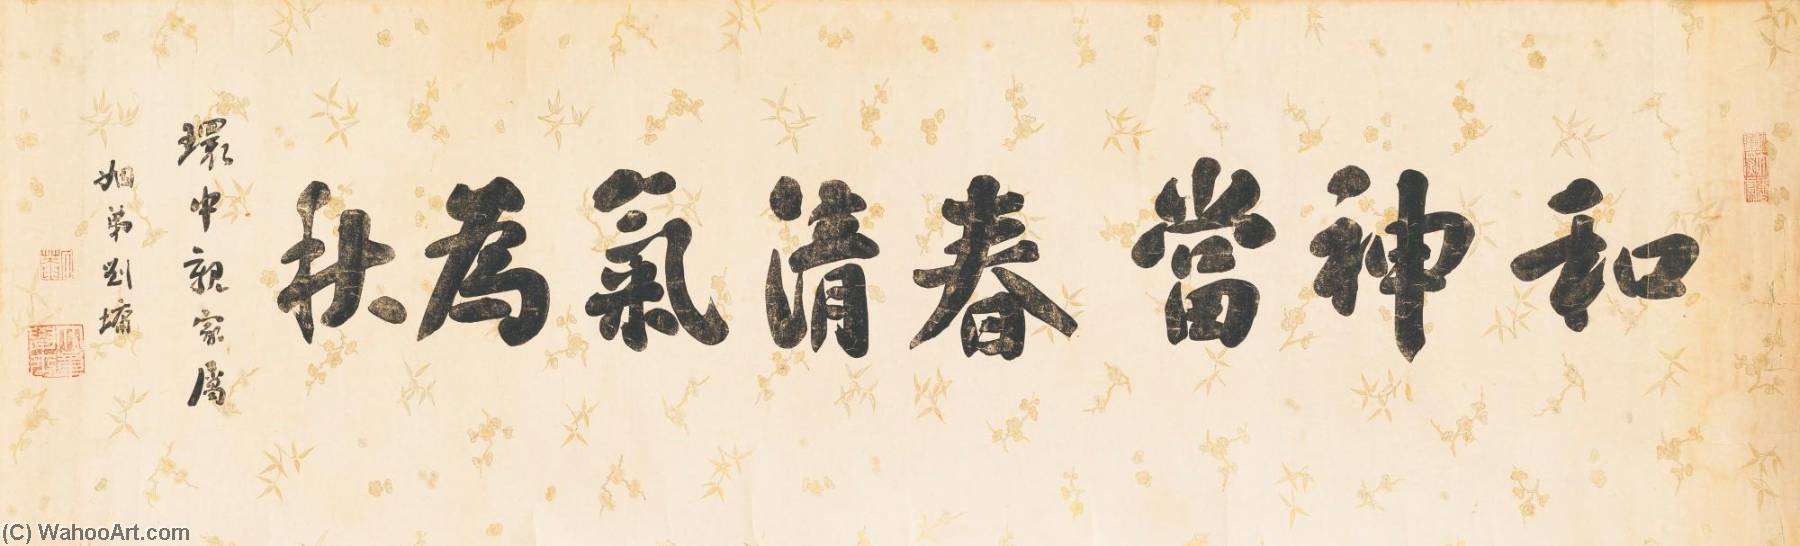 和神當春清氣為秋
環中親家屬
姻弟劉墉
(C) WahooArt.com